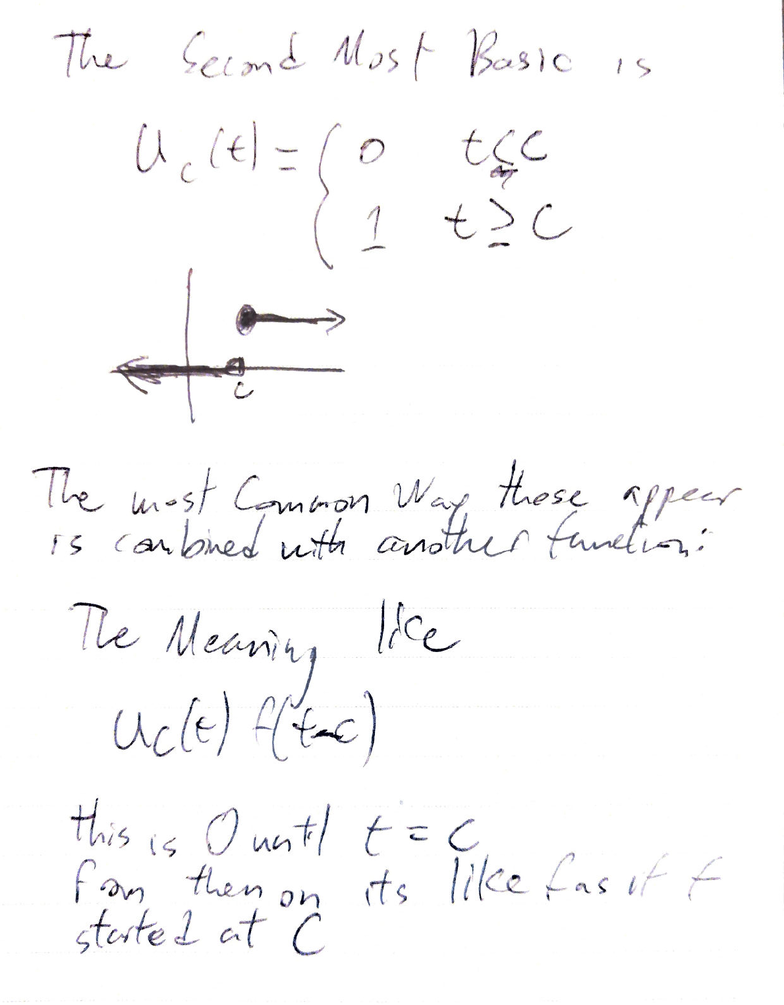 The Second Most Basic is
u_c(t) = { 0 t < c
1 t ≥ c
c
The most Common Way these appear
is combined with another function:
The Meaning like
u_c(t) f(t-c)
this is 0 until t = c
from then on its like f as if f
started at c